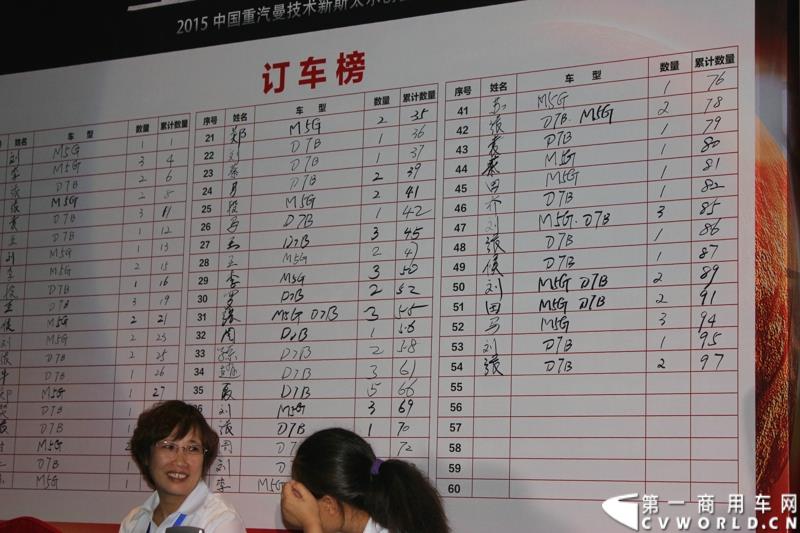 2015 中国重汽曼技术新斯太尔
订车榜
姓名 车 型 数量 累计数量
刘 M5G 1 1
李 M5G 3 4
张 D7B 2 6
M5G 2 8
D7B 3 11
王 D7B 1 12
刘 M5G 1 13
M5G 2 15
D7B 1 16
D7B 3 19
侯 M5G 2 21
刘 M5G 2 23
张 D7B 2 25
牛 D7B 1 26
M5G 1 27
D7B 1
D7B 1
M5G
D7B 1
M5G 1
序号 姓名 车 型 数量 累计数量
21 郑 M5G 2 35
22 刘 D7B 1 36
23 秦 D7B 1 37
24 D7B 2 39
25 段 M5G 2 41
26 马 D7B 1 42
27 D7B 3 45
28 王 M5G 2 47
29 李 M5G 3 50
30 罗 D7B 2 52
31 张 M5G D7B 3 55
32 闫 D7B 1 56
33 孙 D7B 2 58
34 赵 D7B 3 61
35 夏 D7B 5 66
36 刘 M5G 3 69
张 D7B 1 70
周 D7B 72
刘 D7B
李 M5G
序号 姓名 车 型 数量 累计数量
41 M5G 1 76
42 张 D7B. M5G 2 78
43 袁 D7B 1 79
44 秦 M5G 1 80
45 田 M5G 1 81
46 齐 D7B 1 82
47 刘 M5G. D7B 3 85
48 张 D7B 1 86
49 侯 D7B 1 87
50 刘 M5G D7B 2 89
51 田 M5G D7B 2 91
52 马 M5G 3 94
53 刘 D7B 1 95
54 张 D7B 2 97
55
56
57
58
59
60
第一商用车网
CVWORLD.CN